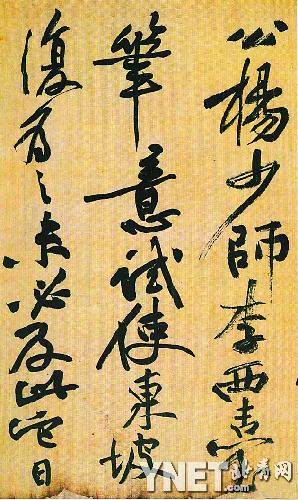 公楊少師李西臺
筆意試使東坡
復為之未必及此它日
YNET.com 北青网